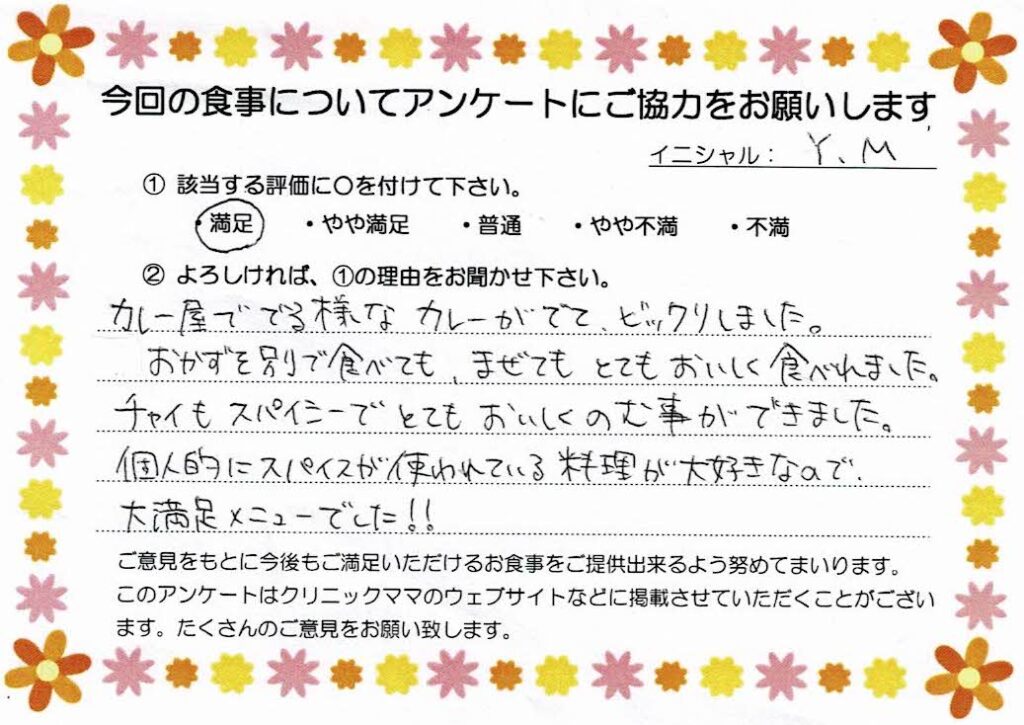 今回の食事についてアンケートにご協力をお願いします
イニシャル： Y、M
① 該当する評価に○を付けて下さい。
・満足 ・やや満足 ・普通 ・やや不満 ・不満
② よろしければ、①の理由をお聞かせ下さい。
カレー屋ででる様なカレーがでて、ビックリしました。
おかずを別で食べても、まぜてもとてもおいしく食べれました。
チャイもスパイシーでとてもおいしくのむ事ができました。
個人的にスパイスが使われている料理が大好きなので、
大満足メニューでした!!
ご意見をもとに今後もご満足いただけるお食事をご提供出来るよう努めてまいります。
このアンケートはクリニックママのウェブサイトなどに掲載させていただくことがござい
ます。たくさんのご意見をお願い致します。